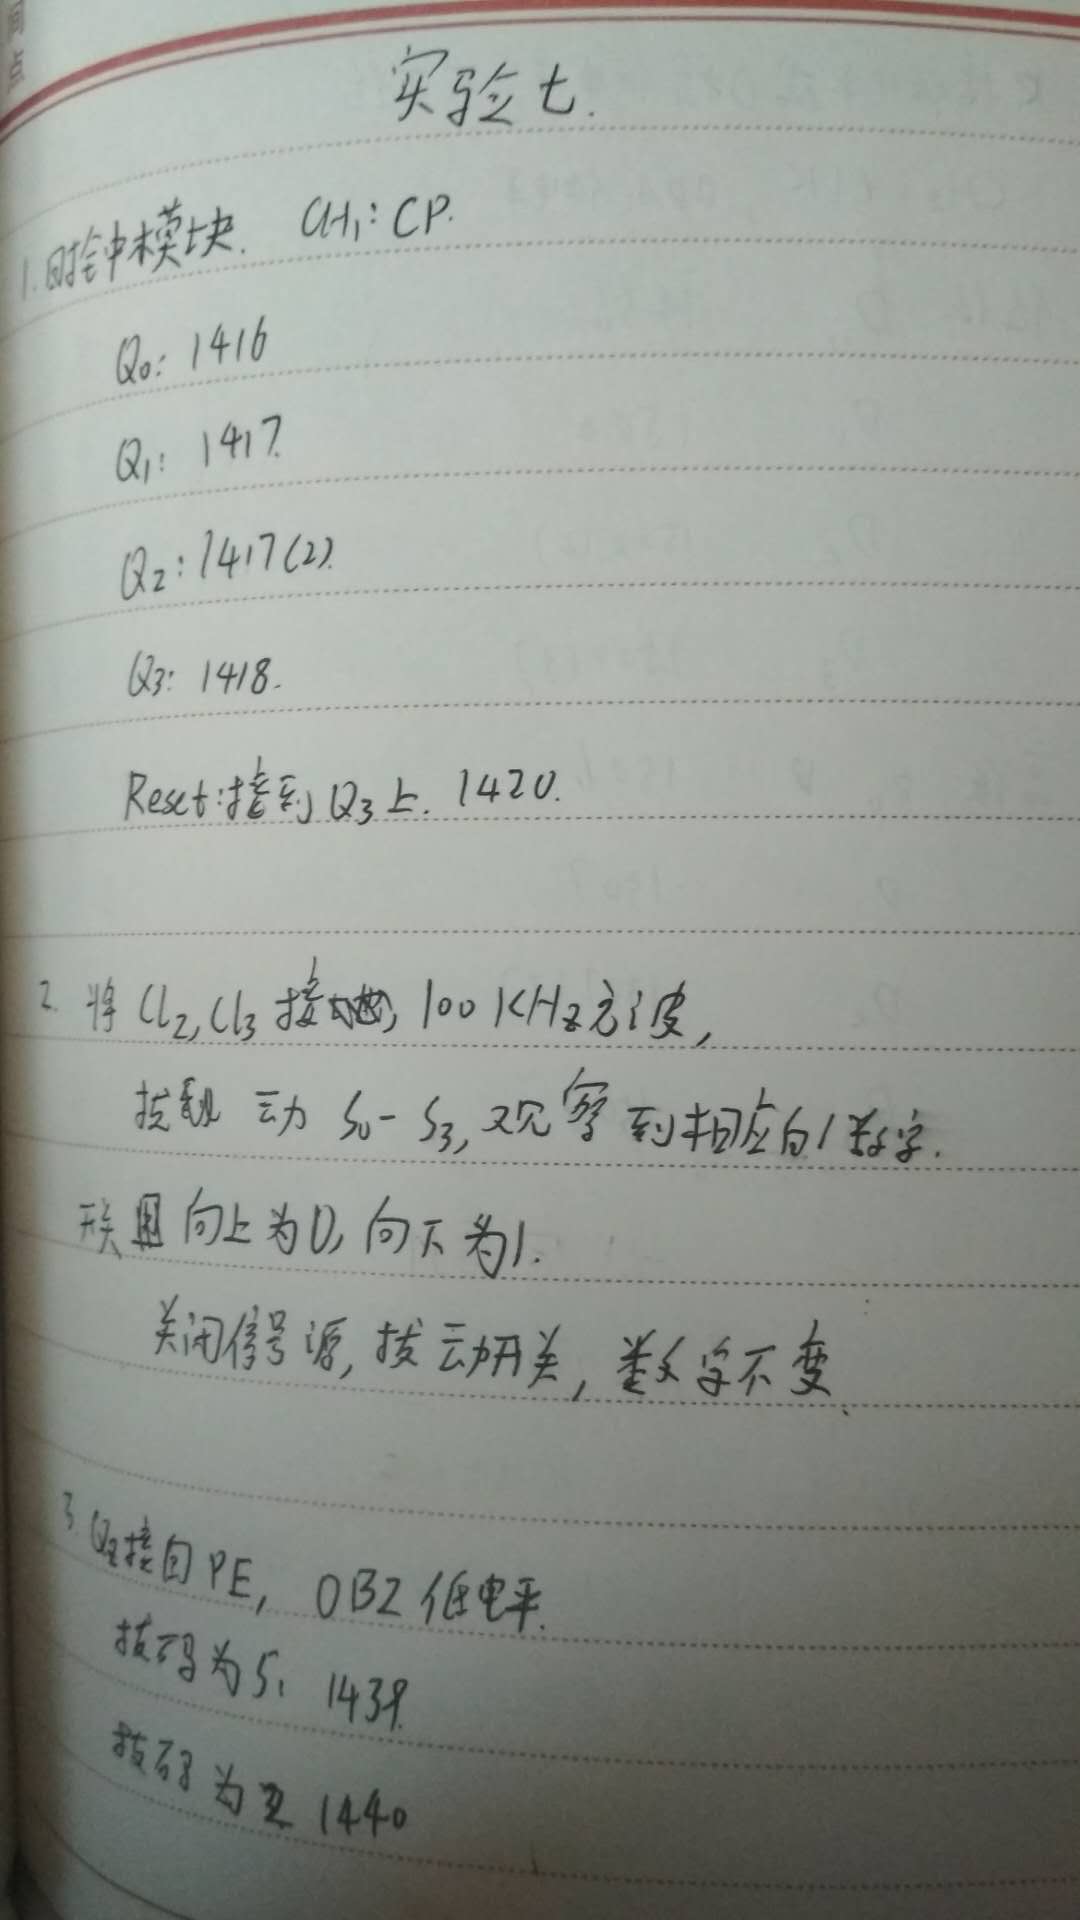 实验七.
1.时钟模块. CH₁: CP.
Q₀: 1416
Q₁: 1417.
Q₂: 1417(2).
Q₃: 1418.
Reset:接到Q₃上. 1420.
2. 将 Cl₂, Cl₃ 接 100KHz方波,
拔 动 S₀-S₃, 观察到相应的数字.
开关 向上为0, 向下为1.
关闭信号源, 拔动开关, 数字不变.
3. 接回PE, OB2低电平.
拔码为5: 1439.
拔码为2 1440